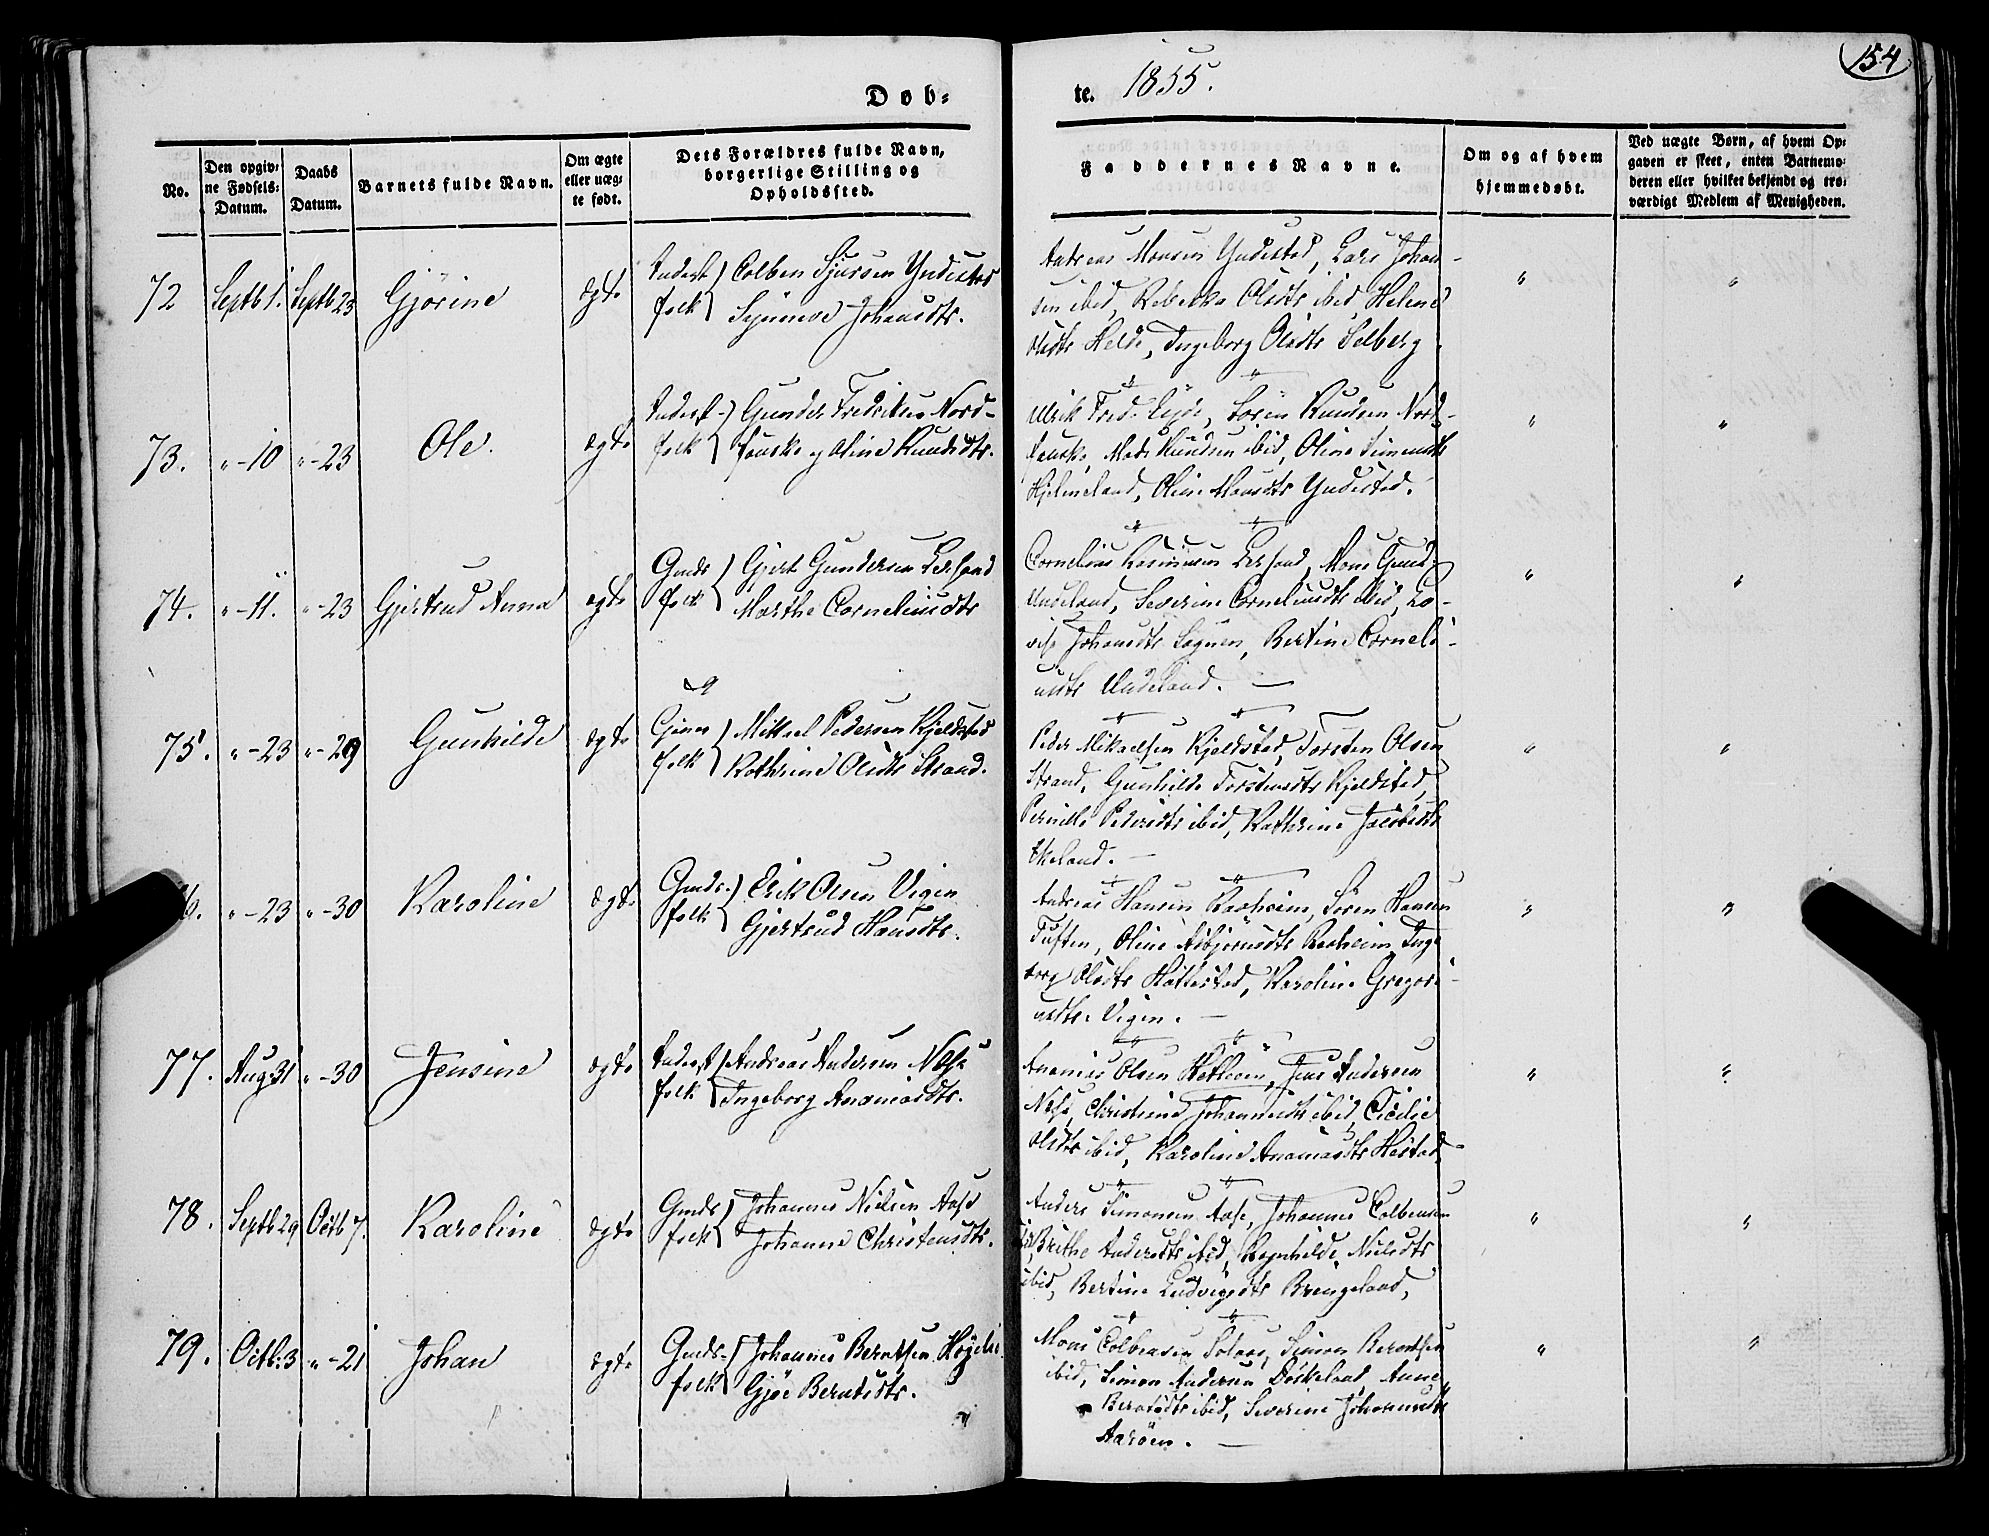 154
Døb-
te. 1855.
No.
Den opgiv-
ne Fødsels-
Datum.
Daabs
Datum.
Barnets fulde Navn.
Om ægte
eller uæg-
te født.
Dets Forældres fulde Navn,
borgerlige Stilling og
Opholdssted.
Faddernes Navne.
Om og af hvem
hjemmedøbt.
Ved uægte Børn, af hvem Op-
gaven er skeet, enten Barnemo-
deren eller hvilket bekjendt og tro-
værdigt Medlem af Menigheden.
72 Septb 1. Septb 23 Gjørine ægte
folk Colben Sjursen Yndestad
Synneve Johansdtr.
Andreas Monsen Yndestad, Lars Johan-
sen ibid, Rebekka Olsdtr ibid, Helene
Olsdtr Helde, Ingeborg Olsdtr Solberg
73. "-10 "-23 Ole. ægte
folk Gunder Fredriksen Nord-
fauske og Oline Knudsdtr.
Ulrik Fred. Søren Knudsen Nord-
fauske Mads Knudsen ibid, Oline Simensdtr
Hjelmeland, Oline Monsdtr Yndestad.
74. "-11. "-23 Gjertrud Anna ægte
Gmds
folk Gjert Gundersen
Marthe Corneliusdtr
Cornelius Rasmusen Mons Gund.
Undeland, Severine Corneliusdtr ibid, Lo-
vise Johansdtr Bertine Corneli-
usdtr Undeland. —
75. "-23 "-29 Gunhilde ægte
folk Mikkel Pedersen Kjeldstad
Kathrine Olsdtr Strand.
Peder Mikaelsen Kjeldstad, Torsten Olsen
Strand, Gunhilde Torstensdtr Kjeldstad,
Pernille Pedersdtr ibid, Kathrine Jacobsdtr
Ekeland. —
6. "-23 "-30 Karoline ægte
Gmds-
folk Erik Olsen Vigen
Gjertrud Hansdtr.
Andreas Hansen Raaheim, Søren Hansen
Tuften, Oline Asbjørnsdtr Raaheim, Inge
borg Olsdtr Hattestad, Karoline Gregori-
usdtr. Vigen. —
77. Aug: 31 "-30 Jensine ægte
folk Andreas Andersen Næse
Ingeborg Ananiasdtr.
Ananias Olsen Jens Andersen
Næse, Christine Johannesdtr ibid, Cicilie
Olsdtr ibid, Karoline Ananiasdtr Hestad,
78. Septb 29 Octb 7. Karoline ægte
Gmds
folk Johannes Nielsen Aase
Johanne Christensdtr.
Anders Simonsen Aase, Johannes Colbensen
Brithe Andersdtr ibid, Ragnhilde Nielsdtr
ibid, Bertine Ludvigsdtr Brengeland,
79. Octb: 3 "-21 Johan ægte
Gmds-
folk Johannes Berntsen
Gjøe Berntsdtr.
Mons Colbensen Simon Berentsen
ibid, Simon Andersen Døskeland Anne
Berntsdtr ibid, Severine Johannesdtr
Aarøen. —